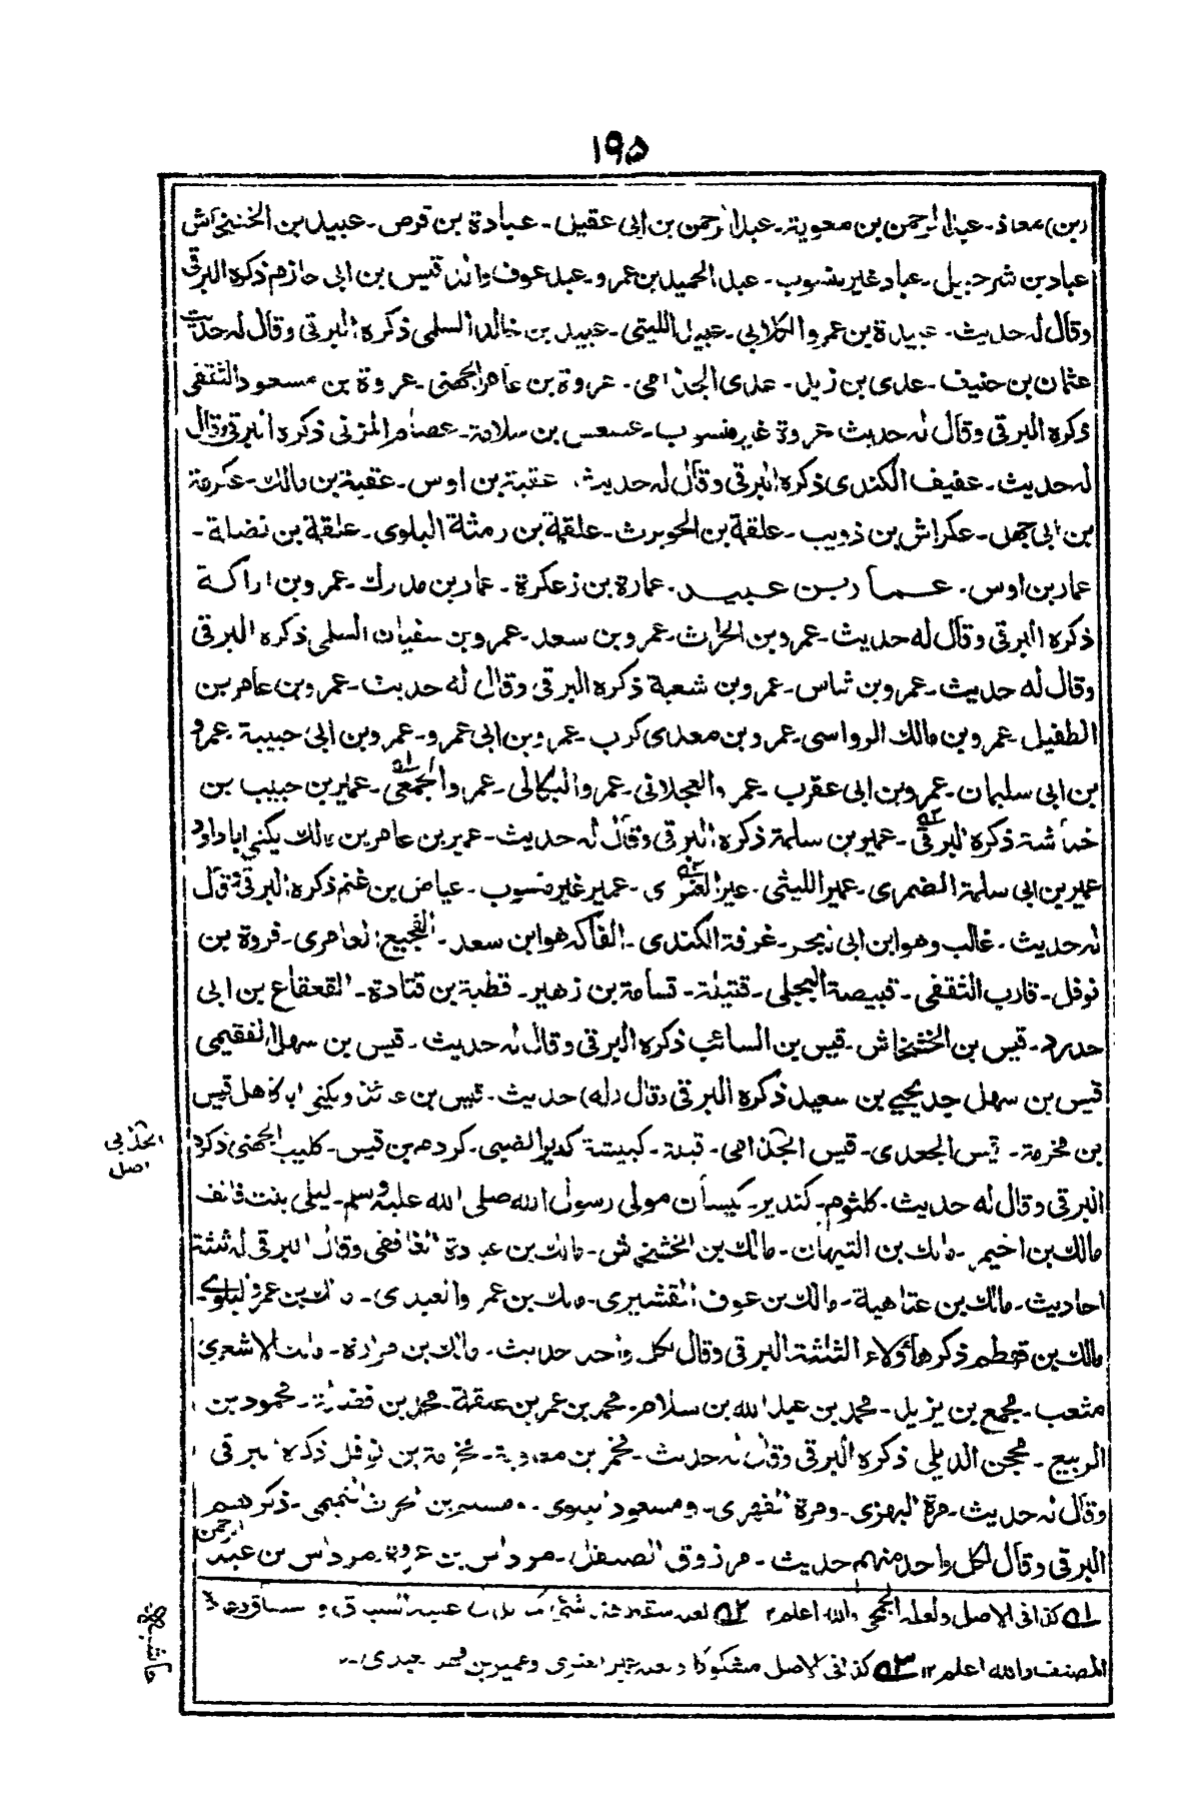 ١٩٥
(بن) معاذ۔ عبد الرحمن بن معوية۔ عبد الرحمن بن ابى عقيل۔ عبادة بن قرص۔ عبيد بن الخشخاش
عباد بن شرحبيل۔ عباد غير منسوب۔ عبد الحميد بن عمرو۔ عبد عوف والد قيس بن ابى حازم ذكره البرقى
وقال له حديث۔ عبيدة بن عمرو الكلابى۔ عبيد الليثى۔ عبيد بن خالد السلمى ذكره البرقى وقال له حديث
عثمان بن حنيف۔ عدى بن زيد۔ عدى الجذامى۔ عروة بن عامر الجهنى۔ عروة بن مسعود الثقفى
ذكره البرقى وقال له حديث عروة غير منسوب۔ عسعس بن سلامة۔ عصام المزنى ذكره البرقى وقال
له حديث۔ عفيف الكندى ذكره البرقى وقال له حديث۔ عتبة بن اوس۔ عقبة بن مالك۔ عكرمة
بن ابى جهل۔ عكراش بن ذويب۔ علقمة بن الحويرث۔ علقمة بن رمثة البلوى۔ علقمة بن نضلة۔
عمار بن اوس۔ عمار بن عبيد۔ عمارة بن زعكرة۔ عمار بن مدرك۔ عمرو بن اراكة
ذكره البرقى وقال له حديث۔ عمرو بن الحارث۔ عمرو بن سعد۔ عمرو بن سفيان السلمى ذكره البرقى
وقال له حديث۔ عمرو بن شاس۔ عمرو بن شعبة ذكره البرقى وقال له حديث۔ عمرو بن عامر بن
الطفيل۔ عمرو بن مالك الرواسى۔ عمرو بن معدى كرب۔ عمرو بن ابى عمرو۔ عمرو بن ابى حبيبة۔ عمرو
بن ابى سليمان۔ عمرو بن ابى عقرب۔ عمرو العجلانى۔ عمرو البكالى۔ عمرو الجمعى ۱۔ عمير بن حبيب بن
خماشة ذكره البرقى ۲۔ عمير بن سلمة ذكره البرقى وقال له حديث۔ عمير بن عامر بن مالك يكنى ابا داود
عمير بن ابى سلمة الضمرى۔ عمير الليثى۔ عمير العنزى ۳۔ عمير غير منسوب۔ عياض بن غنم ذكره البرقى وقال
له حديث۔ غالب وهو ابن ابى نجر۔ غرفة الكندى۔ الفاكه هو ابن سعد۔ الفجيع العامرى۔ فروة بن
نوفل۔ قارب الثقفى۔ قبيصة البجلى۔ قتيلة۔ قسامة بن زهير۔ قطبة بن قتادة۔ القعقاع بن ابى
حدرد۔ قيس بن الخشخاش۔ قيس بن السائب ذكره البرقى وقال له حديث۔ قيس بن سهل الفقيمى
قيس بن سهل جد يحيى بن سعيد ذكره البرقى وقال (له) حديث۔ قيس بن عائذ ويكنى ابا كاهل قيس
بن مخرمة۔ قيس الجعدى۔ قيس الجذامى۔ قبلة۔ كبيشة كدير الضبى۔ كردم بن قيس۔ كليب الجهنى ذكره
البرقى وقال له حديث۔ كلثوم۔ كندير۔ كيسان مولى رسول الله صلى الله عليه وسلم۔ ليلى بنت قانف
مالك بن اخيمر۔ مالك بن التيهان۔ مالك بن الخشخاش۔ مالك بن عبادة الغافقى وقال البرقى له ثلثة
احاديث۔ مالك بن عتاهية۔ مالك بن عوف القشيرى۔ مالك بن عمرو العبدى۔ مالك بن عمرو البلوى۔
مالك بن قهطم ذكر هأولاء الثلثة البرقى وقال لكل واحد حديث۔ مالك بن مرارة۔ مالك الاشعرى
مثعب۔ مجمع بن يزيد۔ محمد بن عبد الله بن سلام۔ محمد بن عمر بن علقمة۔ محمد بن فضالة۔ محمود بن
الربيع۔ محجن الديلى ذكره البرقى وقال له حديث۔ مخمر بن معاوية۔ مخرمة بن نوفل ذكره البرقى
وقال له حديث۔ مرة البهزى۔ ومرة الفهرى۔ ومسعود البلوى۔ ومسلم بن الحرث التميمى۔ ذكرهم
البرقى وقال لكل واحد منهم حديث۔ مرزوق الصيقل۔ مرداس بن عروة۔ مرداس بن عبد الرحمن
الجذبى
اصل
۱ كذا فى الاصل ولعله الجمحى والله اعلم ۱۲ ۲ لعله سقط
المصنف والله اعلم ۱۲ ۳ كذا فى الاصل مشكوكا ولعله عمير العنزى وعمير بن فهد عبدى۔